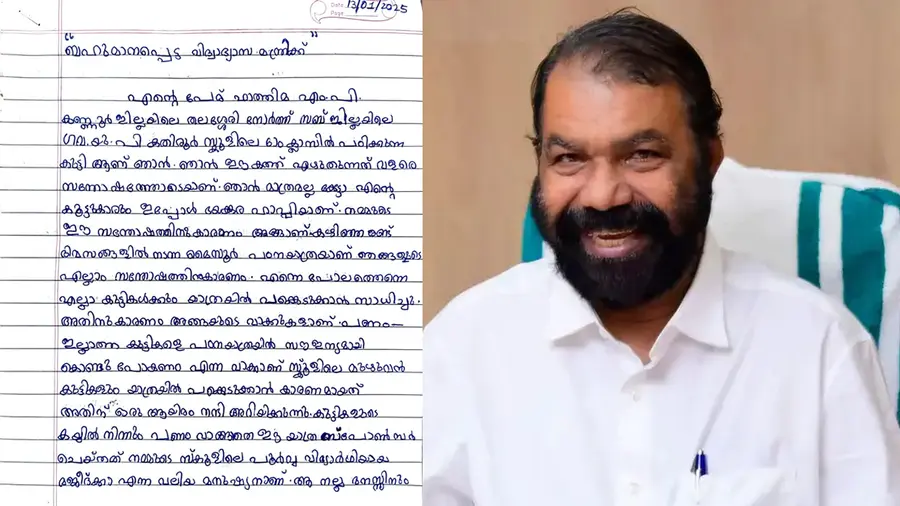 Date 13/01/2025
Page
"ബഹുമാനപ്പെട്ട വിദ്യാഭ്യാസ മന്ത്രിക്ക്"
എന്റെ പേര് ഫാത്തിമ എം.പി.
കണ്ണൂർ ജില്ലയിലെ തലശ്ശേരി നോർത്ത് സബ് ജില്ലയിലെ
ഗവ.യു.പി കതിരൂർ സ്കൂളിലെ ക്ലാസിൽ പഠിക്കുന്ന
കുട്ടി ആണ് ഞാൻ. ഞാൻ ഈ കത്ത് എഴുതുന്നത് വളരെ
സന്തോഷത്തോടെയാണ്. ഞാൻ മാത്രമല്ല കേട്ടോ എന്റെ
കൂട്ടുക്കാരും ഇപ്പോൾ ഭയങ്കര ഹാപ്പിയാണ്. നമ്മുടെ
ഈ സന്തോഷത്തിനുകാരണം അങ്ങാണ്. കഴിഞ്ഞ രണ്ട്
ദിവസങ്ങളിൽ നടന്ന മൈസൂർ പഠനയാത്രയാണ് ഞങ്ങളുടെ
എല്ലാം സന്തോഷത്തിനുകാരണം. എന്നെ പോലത്തെന്നെ
എല്ലാ കുട്ടികൾക്കും യാത്രയിൽ പങ്കെടുക്കാൻ സാധിച്ചു.
അതിനുകാരണം അങ്ങയുടെ വാക്കുകളാണ്. പണം-
ഇല്ലാത്ത കുട്ടികളെ പഠനയാത്രയിൽ സൗജന്യമായി
കൊണ്ടു പോകണം എന്ന വാക്കാണ് സ്കൂളിലെ മുഴുവൻ
കുട്ടികളും യാത്രയിൽ പങ്കെടുക്കാൻ കാരണമായത്
അതിന് ഒരു ആയിരം നന്ദി അറിയിക്കുന്നു. കുട്ടികളുടെ
കയ്യിൽ നിന്നും പണം വാങ്ങാതെ ഈ യാത്ര സ്പോൺസർ
ചെയ്തത് നമ്മുടെ സ്കൂളിലെ പൂർവ്വ വിദ്യാർഥിയായ
മജീദ്ക്കാ എന്ന വലിയ മനുഷ്യനാണ്. ആ നല്ല മനസ്സിനും